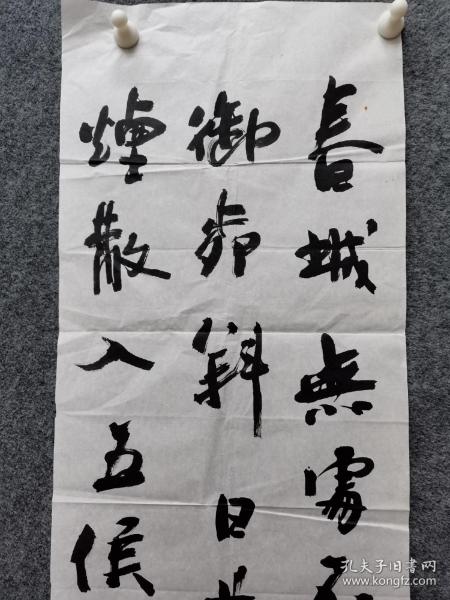 春城無處
御柳斜日
煙散入五侯
孔夫子旧书网
www.kongfz.com